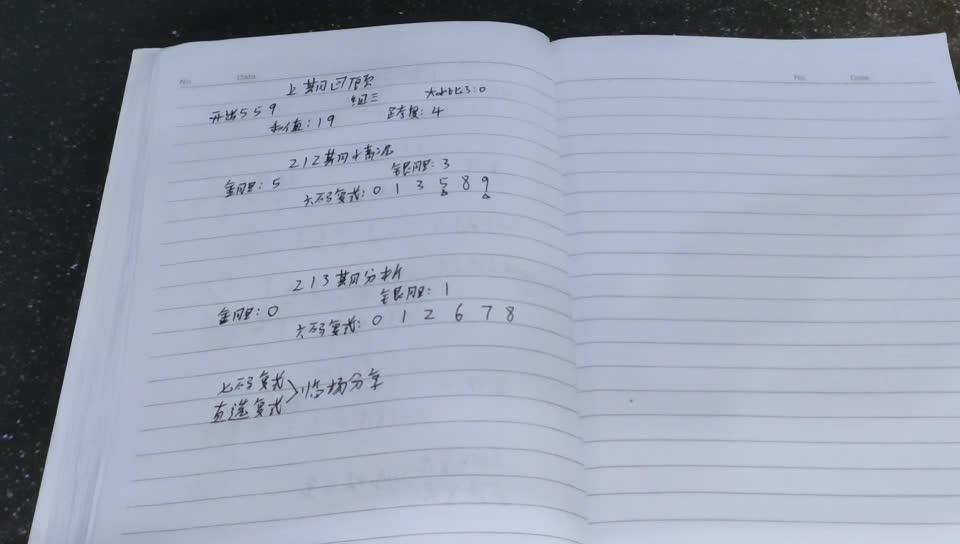 No. Date
上期回顾
开出559 组三 大小比3:0
和值:19 跨度:4
212期中奖情况
金胆:5 银胆:3
六码复式:0 1 3 5 8 9
213期分析
金胆:0 银胆:1
六码复式:0 1 2 6 7 8
七码复式
直选复式 >临场分享
No. Date